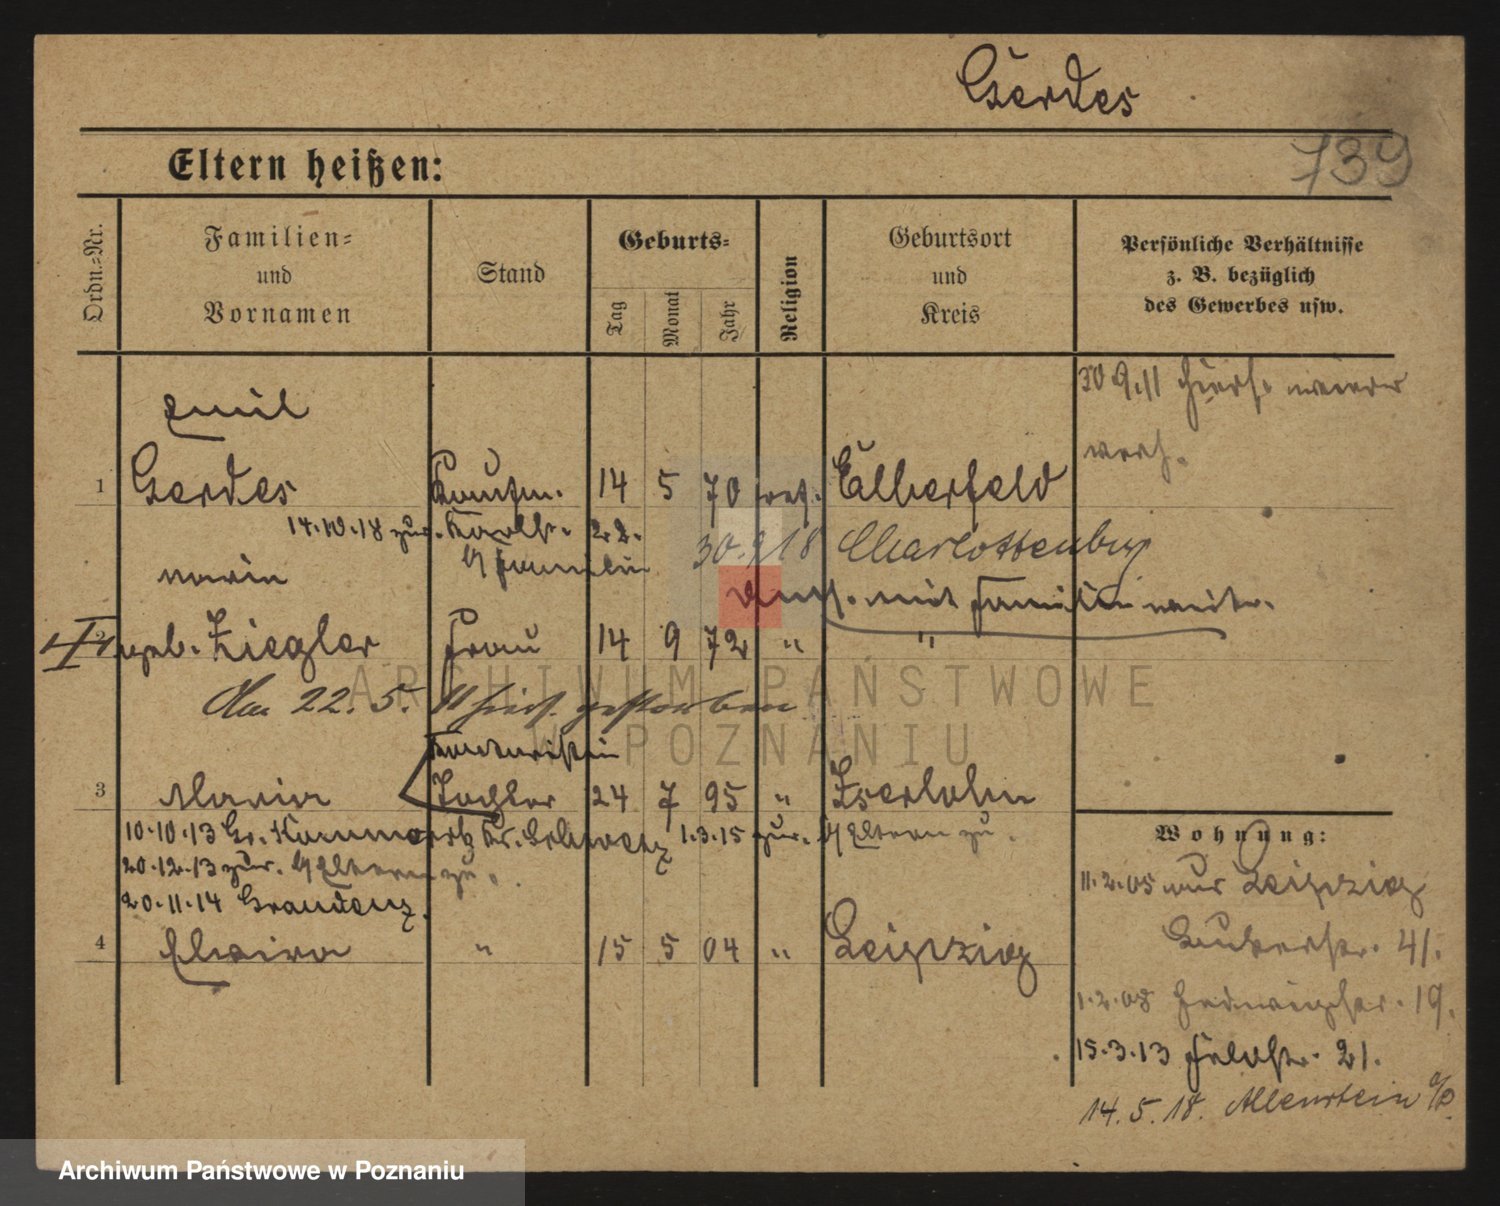 Gerdes
739
Eltern heißen:
Ordn.-Nr.
Familien- und Vornamen
Stand
Geburts-
Tag
Monat
Jahr
Religion
Geburtsort und Kreis
Persönliche Verhältnisse z. B. bezüglich des Gewerbes usw.
30 9.11
Emil
1 Gerdes Kaufm. 14 5 70 Elberfeld
14.10.18 zur. 22. 
30.9.18 Charlottenburg
Maria
mit Familie weiter.
2 geb. Ziegler Frau 14 9 72 " "
Am 22. 5. hier gestorben
Kontoristin
3 Maria Tochter 24 7 95 " Iserlohn
10.10.13 Gr. Kommorsk Kr. Schwetz 1.3.15 zur. Eltern zu.
20.12.13 zur. Eltern zu.
20.11.14 Graudenz.
4 Elwira " 15 5 04 " Leipzig
Wohnung:
11.2.05 aus Leipzig
41.
1.2.08 Hedwigstr. 19.
15.3.13 Feldstr. 21.
14.5.18. Allenstein
ARCHIWUM PAŃSTWOWE
W POZNANIU
Archiwum Państwowe w Poznaniu